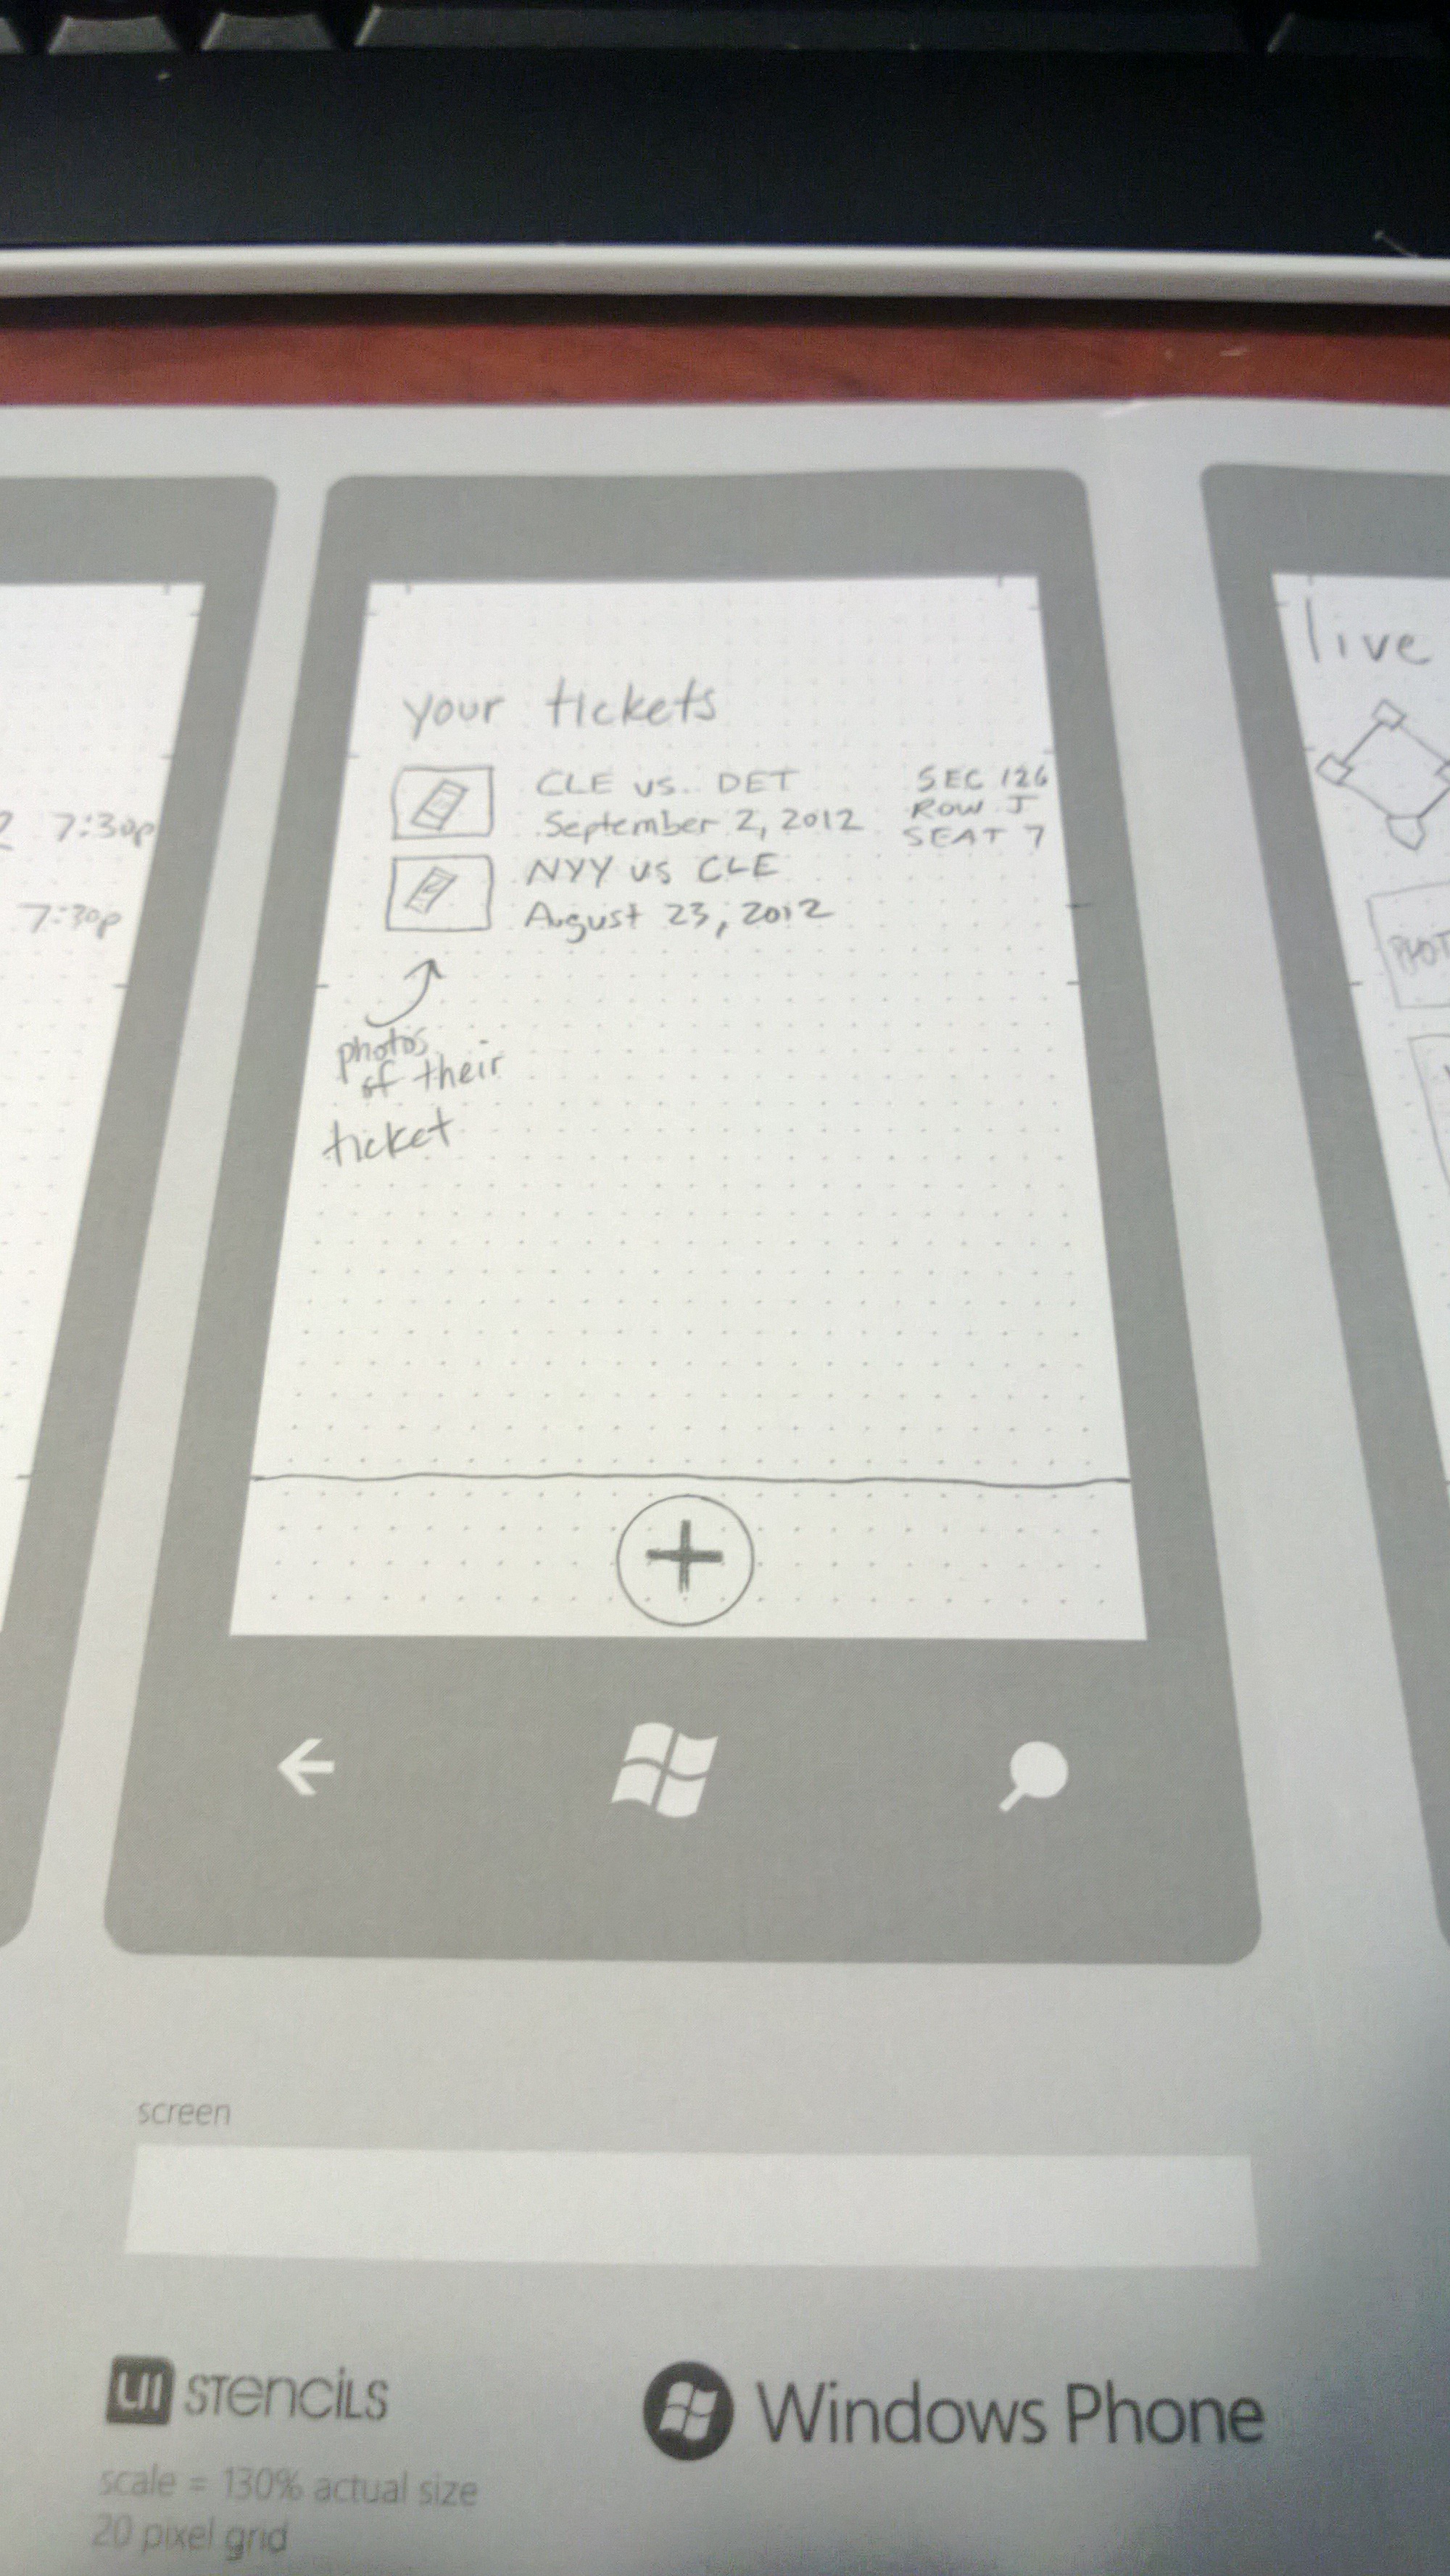 your tickets
CLE vs. DET
September 2, 2012
SEC 126
ROW J
SEAT 7
NYY vs CLE
August 23, 2012
photos
of their
ticket
7:30p
7:30p
live
screen
UI STENCILS
Windows Phone
scale = 130% actual size
20 pixel grid